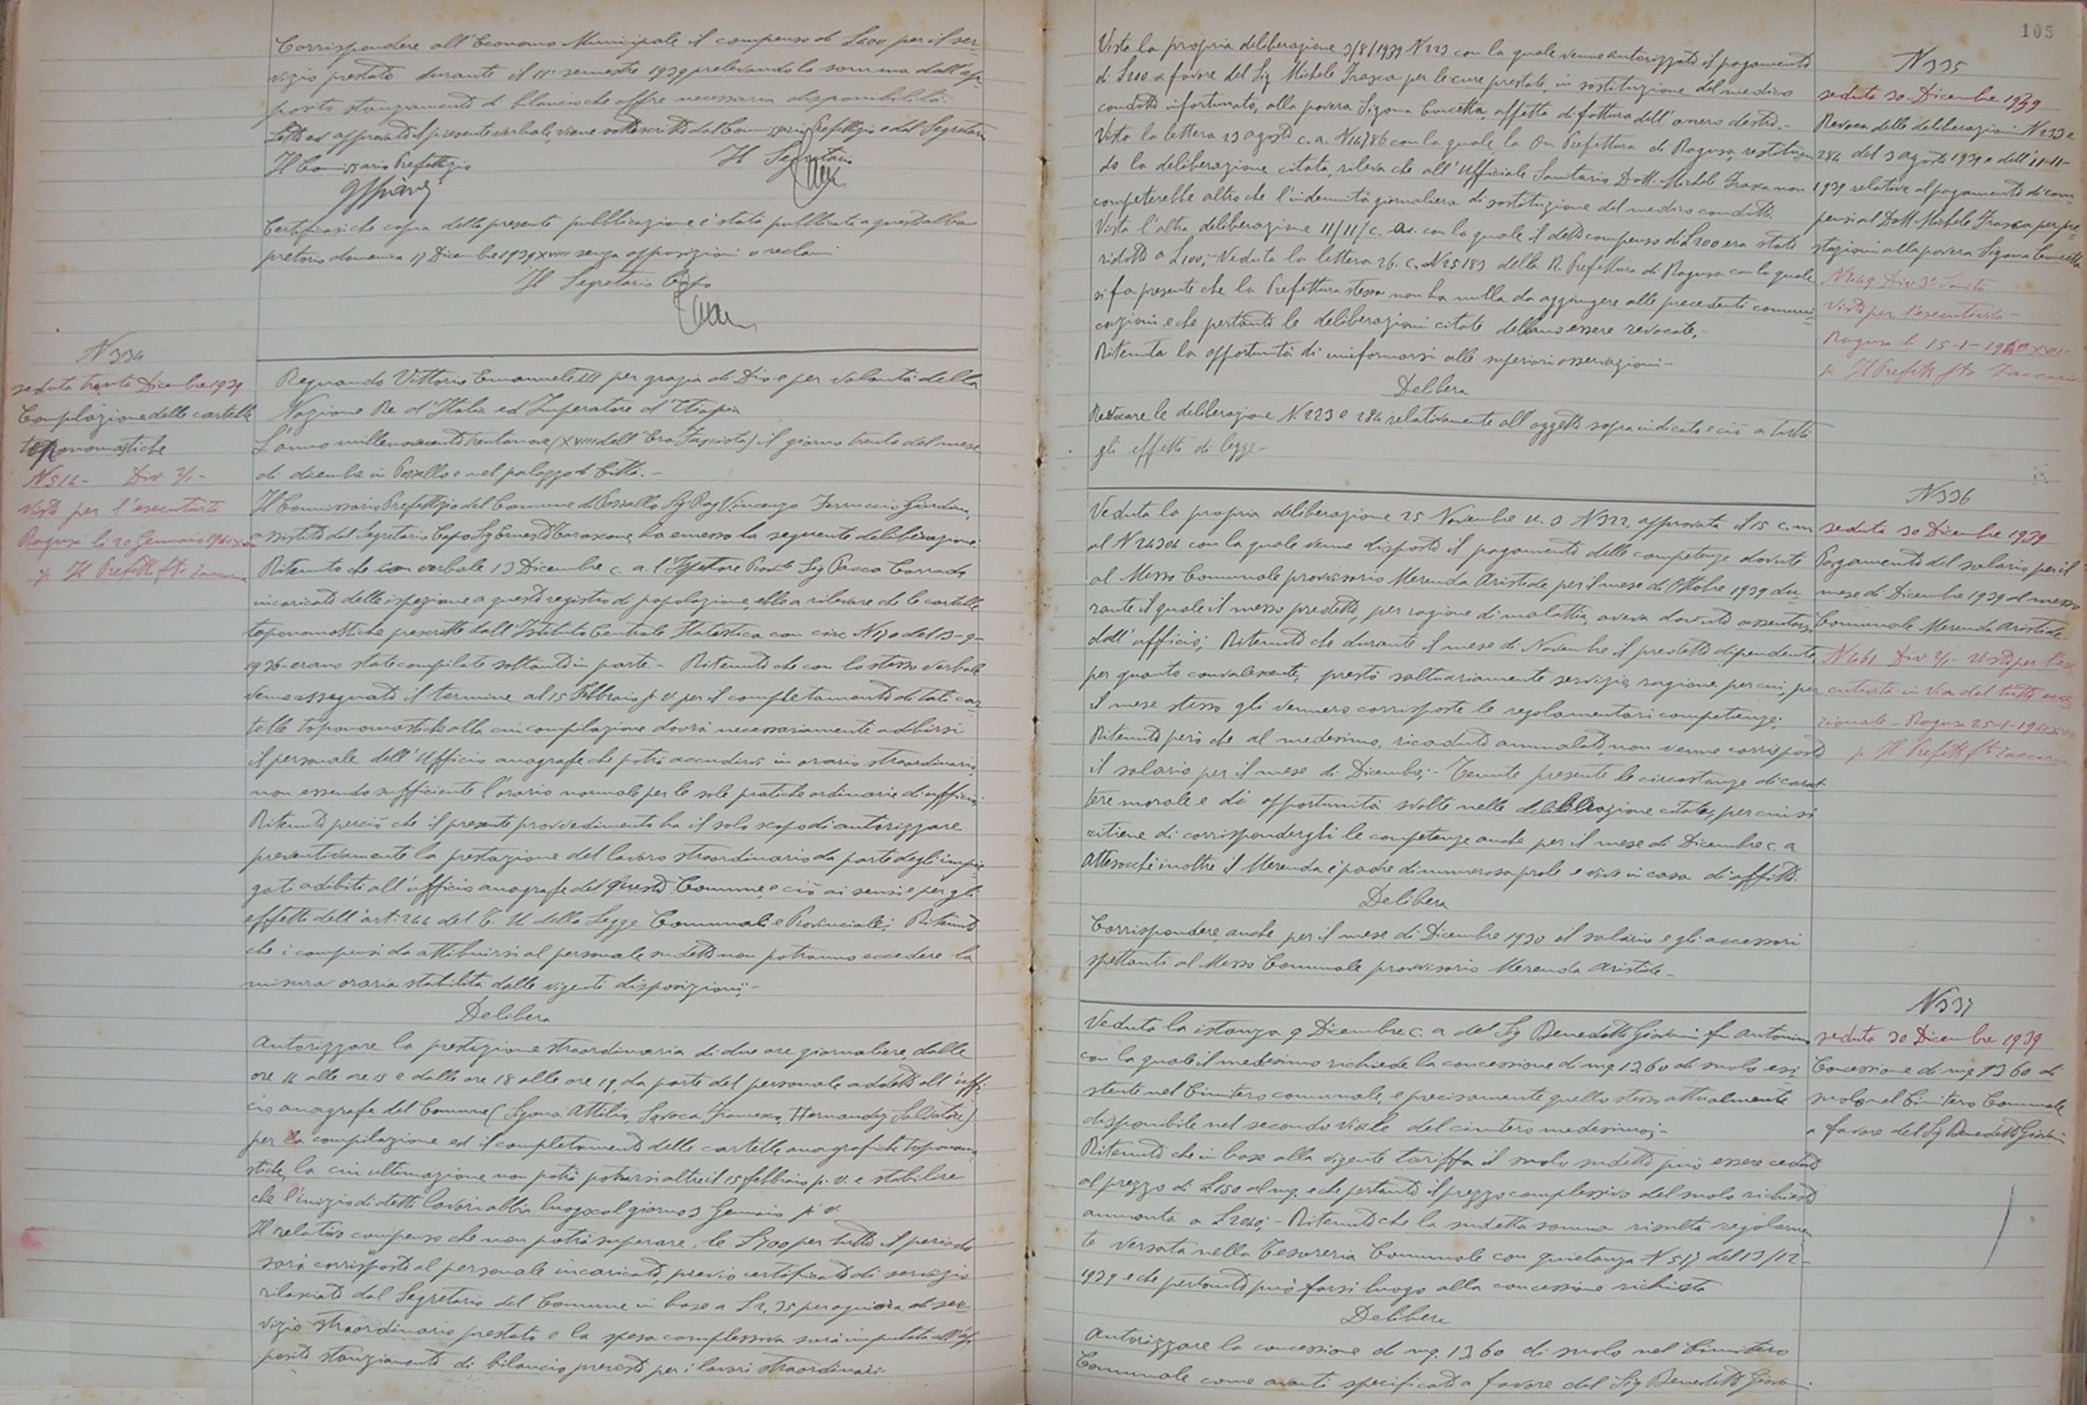 Corrispondere all'Economo Municipale il compenso di L 200 per il ser-
vizio prestato durante il II° semestre 1939 prelevando la somma dall'ap-
posito stanziamento di bilancio che offre necessaria disponibilità.
Letto ed approvato il presente verbale, viene sottoscritto dal Commissario Prefettizio e dal Segretario
Il Commissario Prefettizio
Il Segretario
Certificasi che copia della presente pubblicazione è stata pubblicata a quest'albo
pretorio domenica 17 Dicembre 1939 XVIII senza opposizioni o reclami
Il Segretario Capo
N 334
seduta trenta Dicembre 1939
Compilazione delle cartelle
toponomastiche
N 514 - Div 2/1 -
Visto per l'esecutività
Ragusa li 20 Gennaio 1940 XVIII
p. Il Prefetto fto Zaccaria
Regnando Vittorio Emanuele III per grazia di Dio e per volontà della
Nazione Re d'Italia ed Imperatore d'Etiopia
L'anno millenovecentotrentanove (XVIII dell'Era Fascista) il giorno trenta del mese
di dicembre in Pozzallo e nel palazzo di Città. -
Il Commissario Prefettizio del Comune di Pozzallo Sig Rag Vincenzo Ferruccio Giordano,
assistito dal Segretario Capo Sig Ernesto Carasone, ha emesso la seguente deliberazione:
Ritenuto che con verbale 13 Dicembre c. a. l'Ispettore Prov.le Sig Pacca Corrado
incaricato delle ispezione a questo registro di popolazione, ebbe a rilevare che le cartelle
toponomastiche prescritte dall'Istituto Centrale Statistica con circ N 170 del 13-9-
1936 erano state compilate soltanto in parte. - Ritenuto che con lo stesso verbale
venne assegnato il termine al 15 Febbraio p. v. per il completamento di tali car-
telle toponomastiche alla cui compilazione dovrà necessariamente adibirsi
il personale dell'Ufficio anagrafe che potrà accudirvi in orario straordinario,
non essendo sufficiente l'orario normale per le sole pratiche ordinarie d'ufficio;
Ritenuto perciò che il presente provvedimento ha il solo scopo di autorizzare
preventivamente la prestazione del lavoro straordinario da parte degli impie-
gati adibiti all'ufficio anagrafe del questo Comune, e ciò ai sensi e per gli
effetti dell'art. 244 del T. U. della Legge Comunale e Provinciale; Ritenuto
che i compensi da attribuirsi al personale sudetto non potranno eccedere la
misura oraria stabilita dalle vigenti disposizioni; -
Delibera
Autorizzare la prestazione straordinaria di due ore giornaliere, dalle
ore 14 alle ore 15 e dalle ore 18 alle ore 19, da parte del personale addetto all'uffi-
cio anagrafe del Comune (Sgana Attilio, Savoca Francesco, Hernandez Salvatore)
per la compilazione ed il completamento delle cartelle anagrafiche toponoma-
stiche, la cui ultimazione non potrà potrarsi oltre il 15 febbraio p. v. e stabilire
che l'inizio di detti lavori abbia luogo col giorno 3 Gennaio p. v.
Il relativo compenso che non potrà superare, le L 700 per tutto il periodo
sarà corrisposto al personale incaricato, previo certificato di servizio
rilasciato dal Segretario del Comune in base a L 2,35 per ogni ora di ser-
vizio straordinario prestato e la spesa complessiva sarà imputata all'ap-
posito stanziamento di bilancio previsto per i lavori straordinari.
105
Vista la propria deliberazione 3/8/1939 N 223 con la quale venne autorizzato il pagamento
di L 200 a favore del Sig Michele Frasca per le cure prestate, in sostituzione del medico
condotto infortunato, alla povera Sigona Concetta, affetta di frattura dell'omero destro. -
Vista la lettera 23 agosto c. a. N 14786 con la quale, la On. Prefettura di Ragusa, restituen-
do la deliberazione citata, rileva che all'Ufficiale Sanitario Dott. Michele Frasca non
competerebbe altro che l'indennità giornaliera di sostituzione del medico condotto.
Vista l'altra deliberazione 11/11/c. a. con la quale il detto compenso di L 200 era stato
ridotto a L 100; - Veduta la lettera 26. c. N 25183 della R. Prefettura di Ragusa con la quale
si fa presente che la Prefettura stessa non ha nulla da aggiungere alle precedenti comuni-
cazioni e che pertanto le deliberazioni citate debbano essere revocate; -
Ritenuta la opportunità di uniformarsi alle superiori osservazioni -
Delibera
Revocare le deliberazione N. 223 e 284 relativamente all'oggetto sopra indicato e ciò a tutti
gli effetti di legge -
N 335
seduta 30 Dicembre 1939
Revoca delle deliberazioni N 223 e
284 del 3 agosto 1939 e dell'11-11-
1939 relative al pagamento di com
pensi al Dott. Michele Frasca per pre-
stazioni alla povera Sigona Concetta
N 249 Div 3ª Sanità
Visto per l'esecutività -
Ragusa li 15-1-1940 XVIII
p. Il Prefetto fto Zaccaria
Veduta la propria deliberazione 25 Novembre u. s. N 322, approvata il 15 c. m
al N 24304 con la quale venne disposto il pagamento delle competenze dovute
al Messo Comunale provvisorio Merenda Aristide per il mese di Ottobre 1939 du-
rante il quale il messo predetto, per ragione di malattia, aveva dovuto assentarsi
dall'ufficio; Ritenuto che durante il mese di Novembre il predetto dipendente,
per quanto convalescente, prestò saltuariamente servizio, ragione per cui, per
il mese stesso gli vennero corrisposte le regolamentari competenze;
Ritenuto però che al medesimo, ricaduto ammalato non venne corrisposto
il salario per il mese di Dicembre; - Tenute presente le circostanze di carat-
tere morale e di opportunità svolte nella deliberazione citata, per cui si
ritiene di corrispondergli le competenze anche per il mese di Dicembre c. a
Attesocchè inoltre il Merenda è padre di numerosa prole e vive in casa di affitto.
Delibera
Corrispondere, anche per il mese di Dicembre 1930 il salario e gli accessori
spettanti al Messo Comunale provvisorio Merenda Aristide -
N 336
seduta 30 Dicembre 1939
Pagamento del salario per il
mese di Dicembre 1939 al messo
Comunale Merenda Aristide
N 461 Div 2/1 - Visto per l'ese-
cutività in via del tutto ecce-
zionale - Ragusa 25-1-1940 XVIII
p. Il Prefetto fto Zaccaria
Veduta la istanza 9 Dicembre c. a del Sig Benedetto Giovanni fu Antonino
con la quale il medesimo richiede la concessione di mq 13,60 di suolo esi-
stente nel Cimitero comunale, e precisamente quello stesso attualmente
disponibile nel secondo viale del cimitero medesimo; -
Ritenuto che in base alla vigente tariffa il suolo sudetto può essere ceduto
al prezzo di L 150 al mq. e che pertanto il prezzo complessivo del suolo richiesto
ammonta a L 2040; - Ritenuto che la sudetta somma risulta regolarmen-
te versata nella Tesoreria Comunale con quietanza N 517 del 13/12 -
1939 e che pertanto può farsi luogo alla concessione richiesta
Delibera
Autorizzare la concessione di mq. 13,60 di suolo nel Cimitero
Comunale come avanti specificato a favore del Sig Benedetto Giovanni
N 337
seduta 30 Dicembre 1939
Concessione di mq 13 60 di
suolo nel Cimitero Comunale
a favore del Sig Benedetto Giovanni